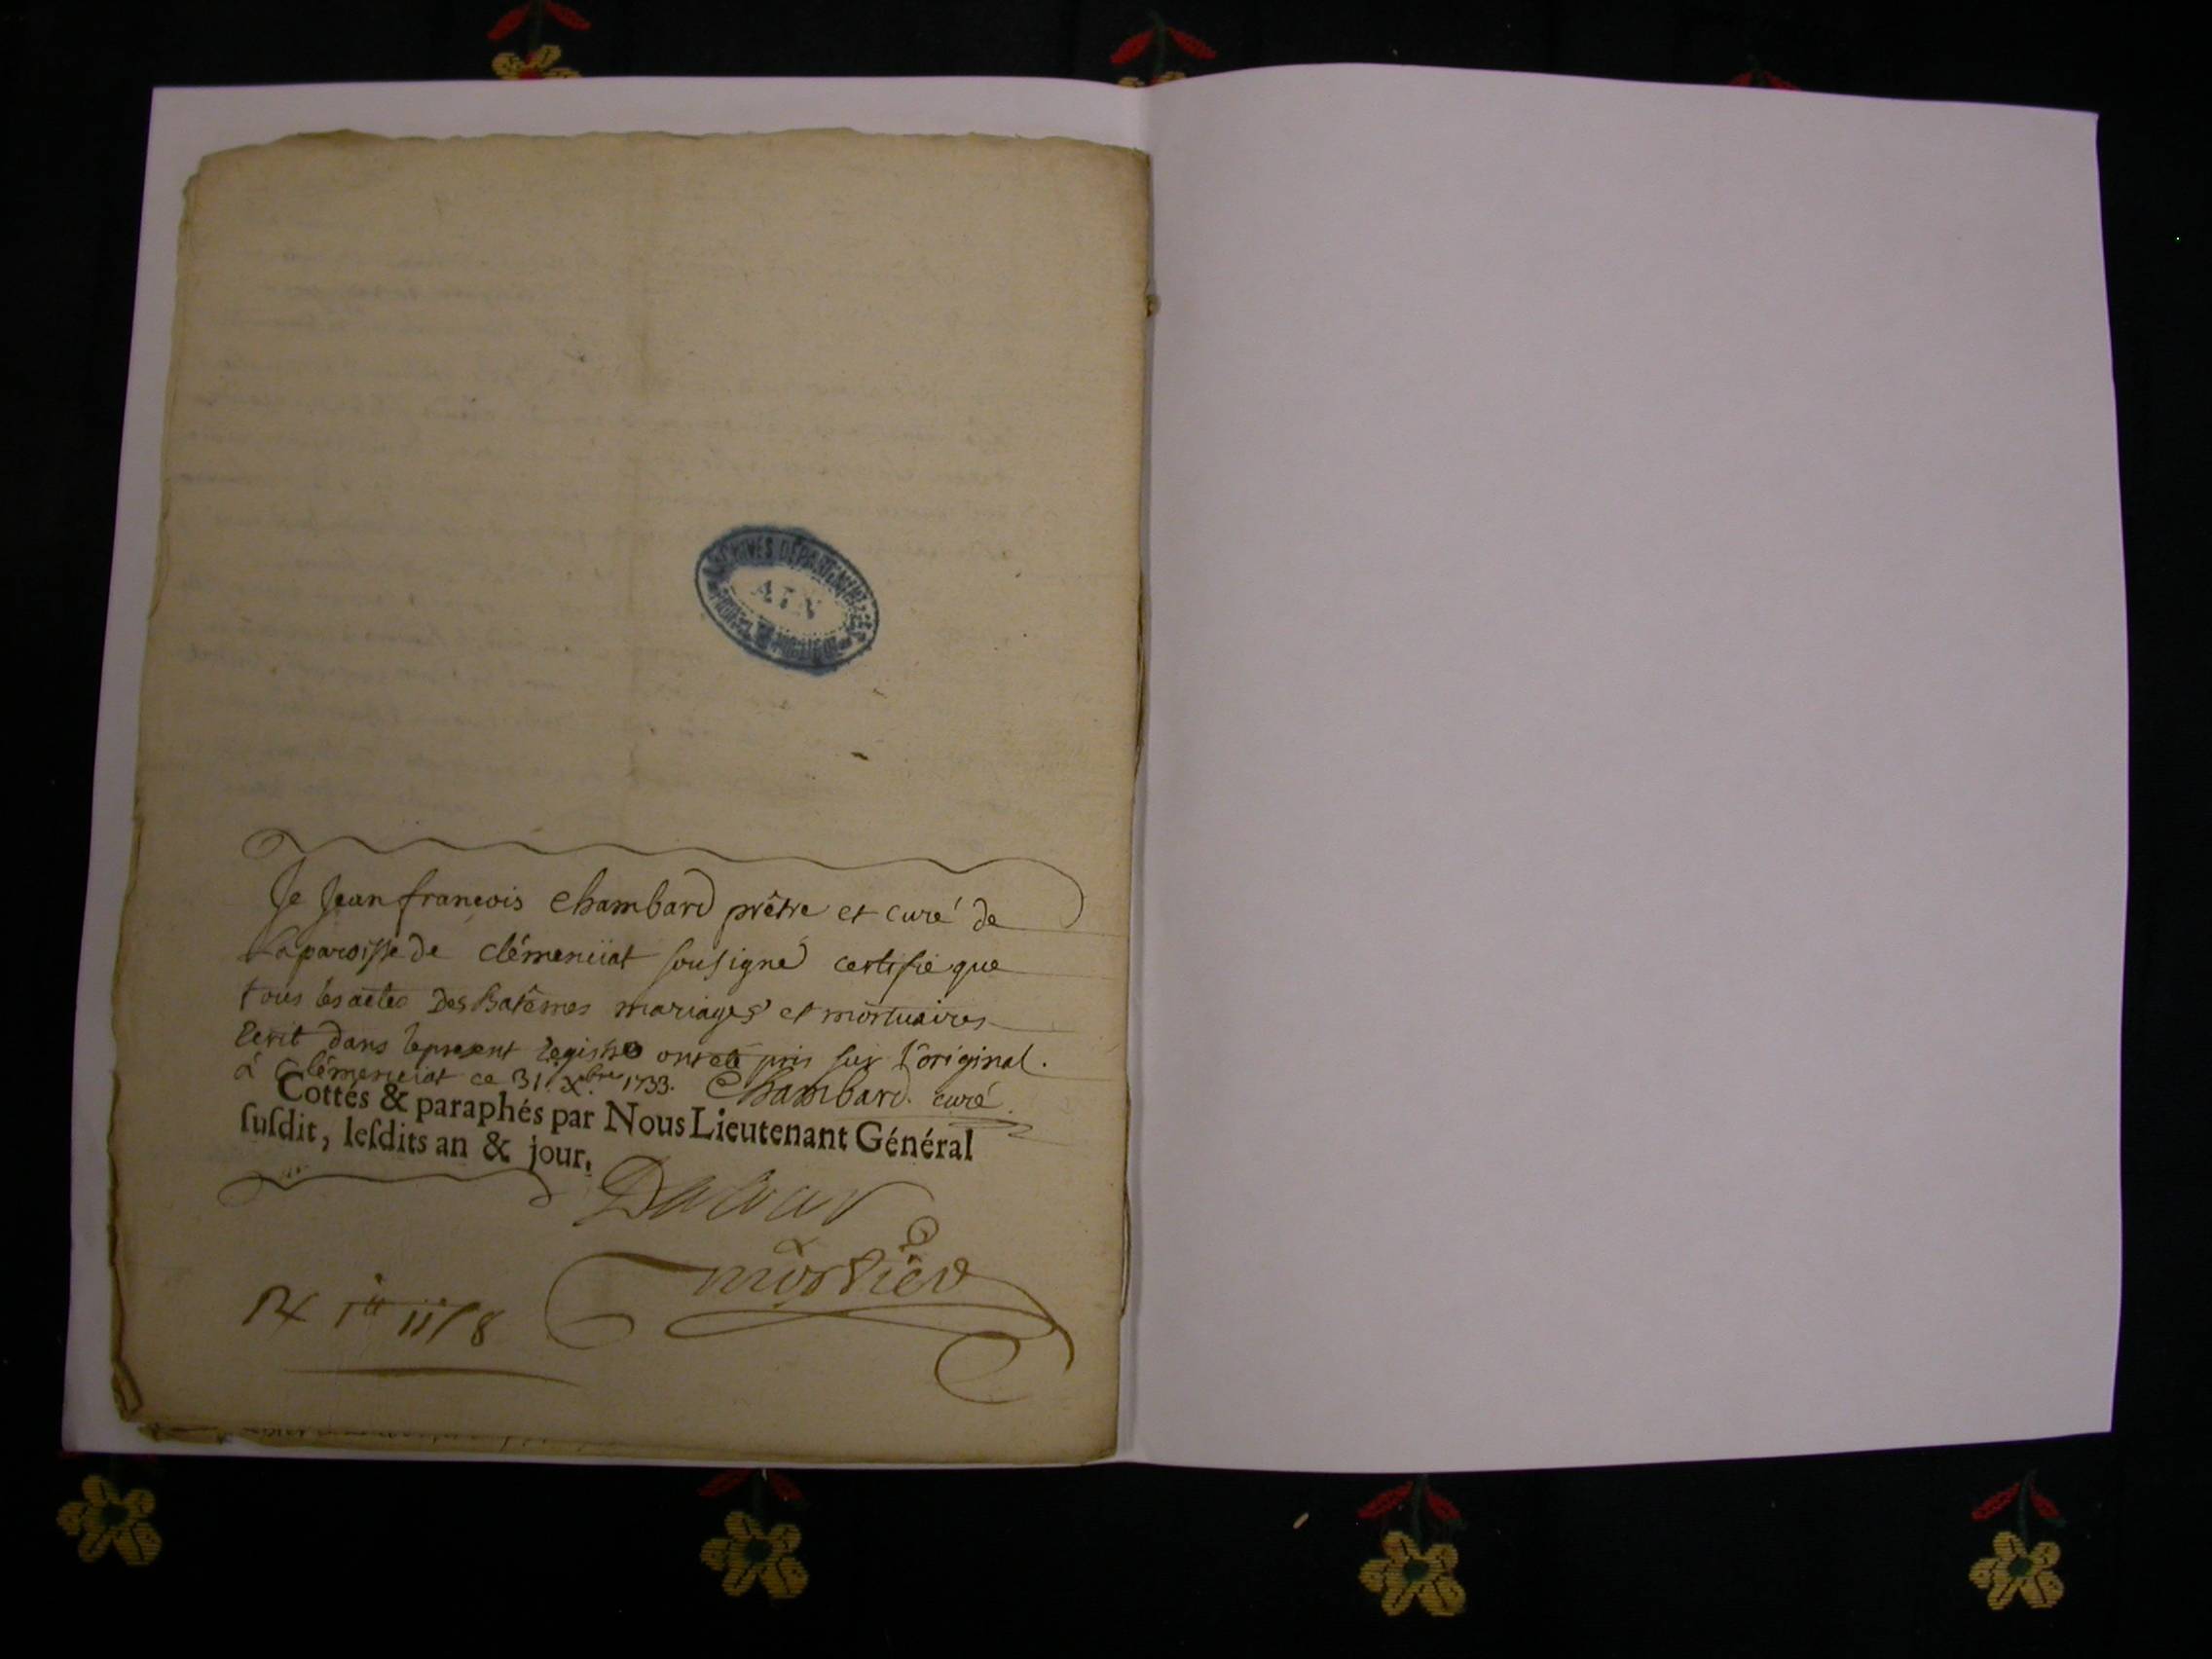 ARCHIVES DÉPARTEMENTALES
AIN
Je Jean françois Chambard prêtre et curé de
la paroisse de clémenciat sousigné certifie que
tous les actes Des Batêmes mariages et mortuaires
ecrit dans le present registre ont eté pris sur l'original.
à Clémenciat ce 31. Xbre 1733. Chambard. curé
Cottés & paraphés par Nous Lieutenant Général
ſuſdit, leſdits an & jour.